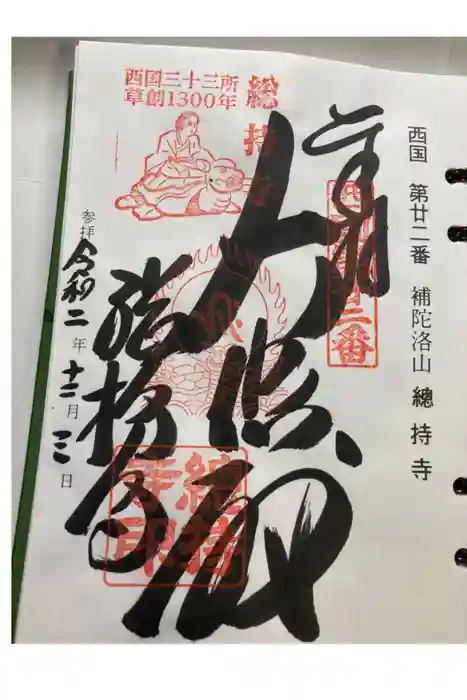 西国 第廿二番 補陀洛山 總持寺
奉拝
大悲殿
総持寺
西国三十三所
草創1300年
総持寺
西国第廿二番
総持寺印
参拝 令和二年十二月三日